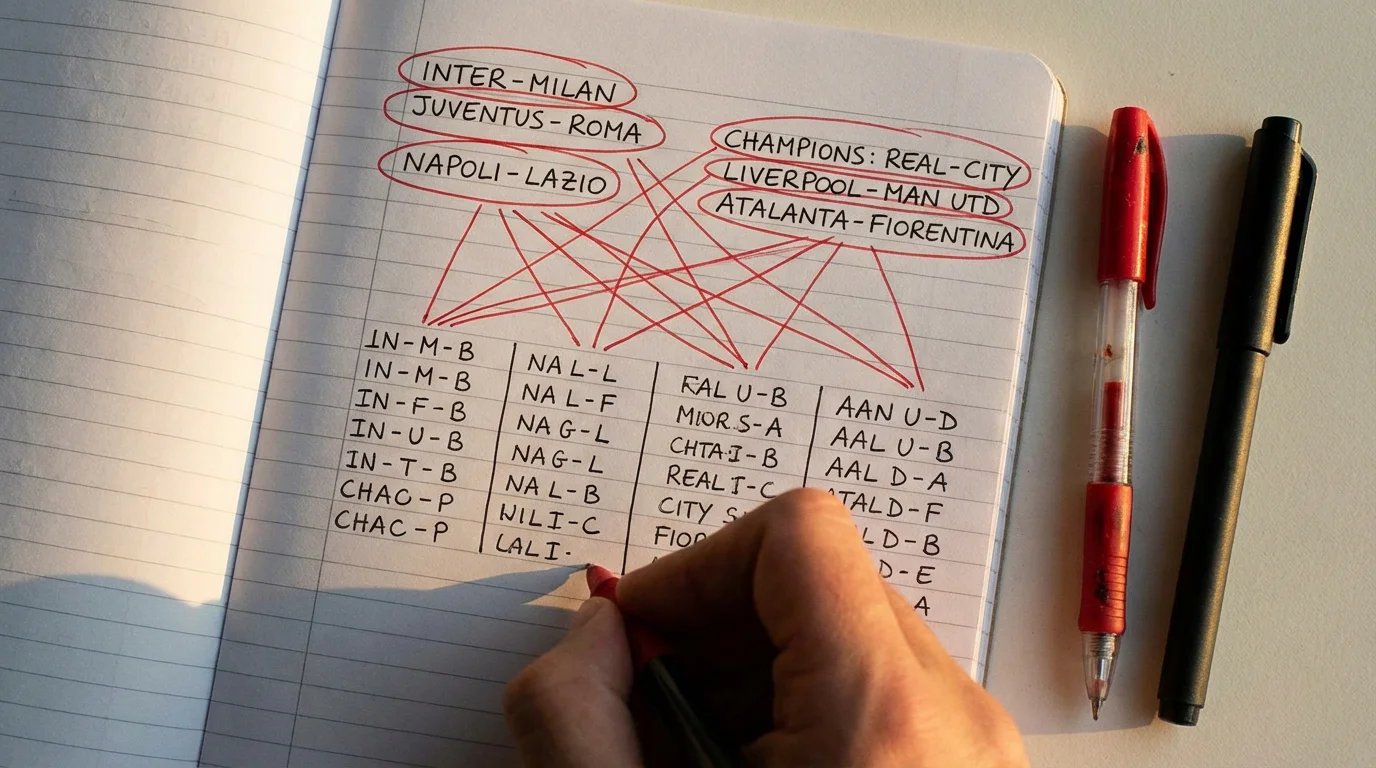 INTER-MILAN
JUVENTUS-ROMA
NAPOLI-LAZIO
CHAMPIONS: REAL-CITY
LIVERPOOL-MAN UTD
ATALANTA-FIORENTINA
IN-M-B
IN-M-B
IN-F-B
IN-U-B
IN-T-B
CHAC-P
CHAC-P
NA L-L
NA L-F
NA G-L
NA G-L
NA L-B
NIL I-C
LAL I-
U-B
S-A
I-B
REAL I-C
CITY
AAN U-D
AAL U-B
AAL D-A
D-F
D-B
D-E
A